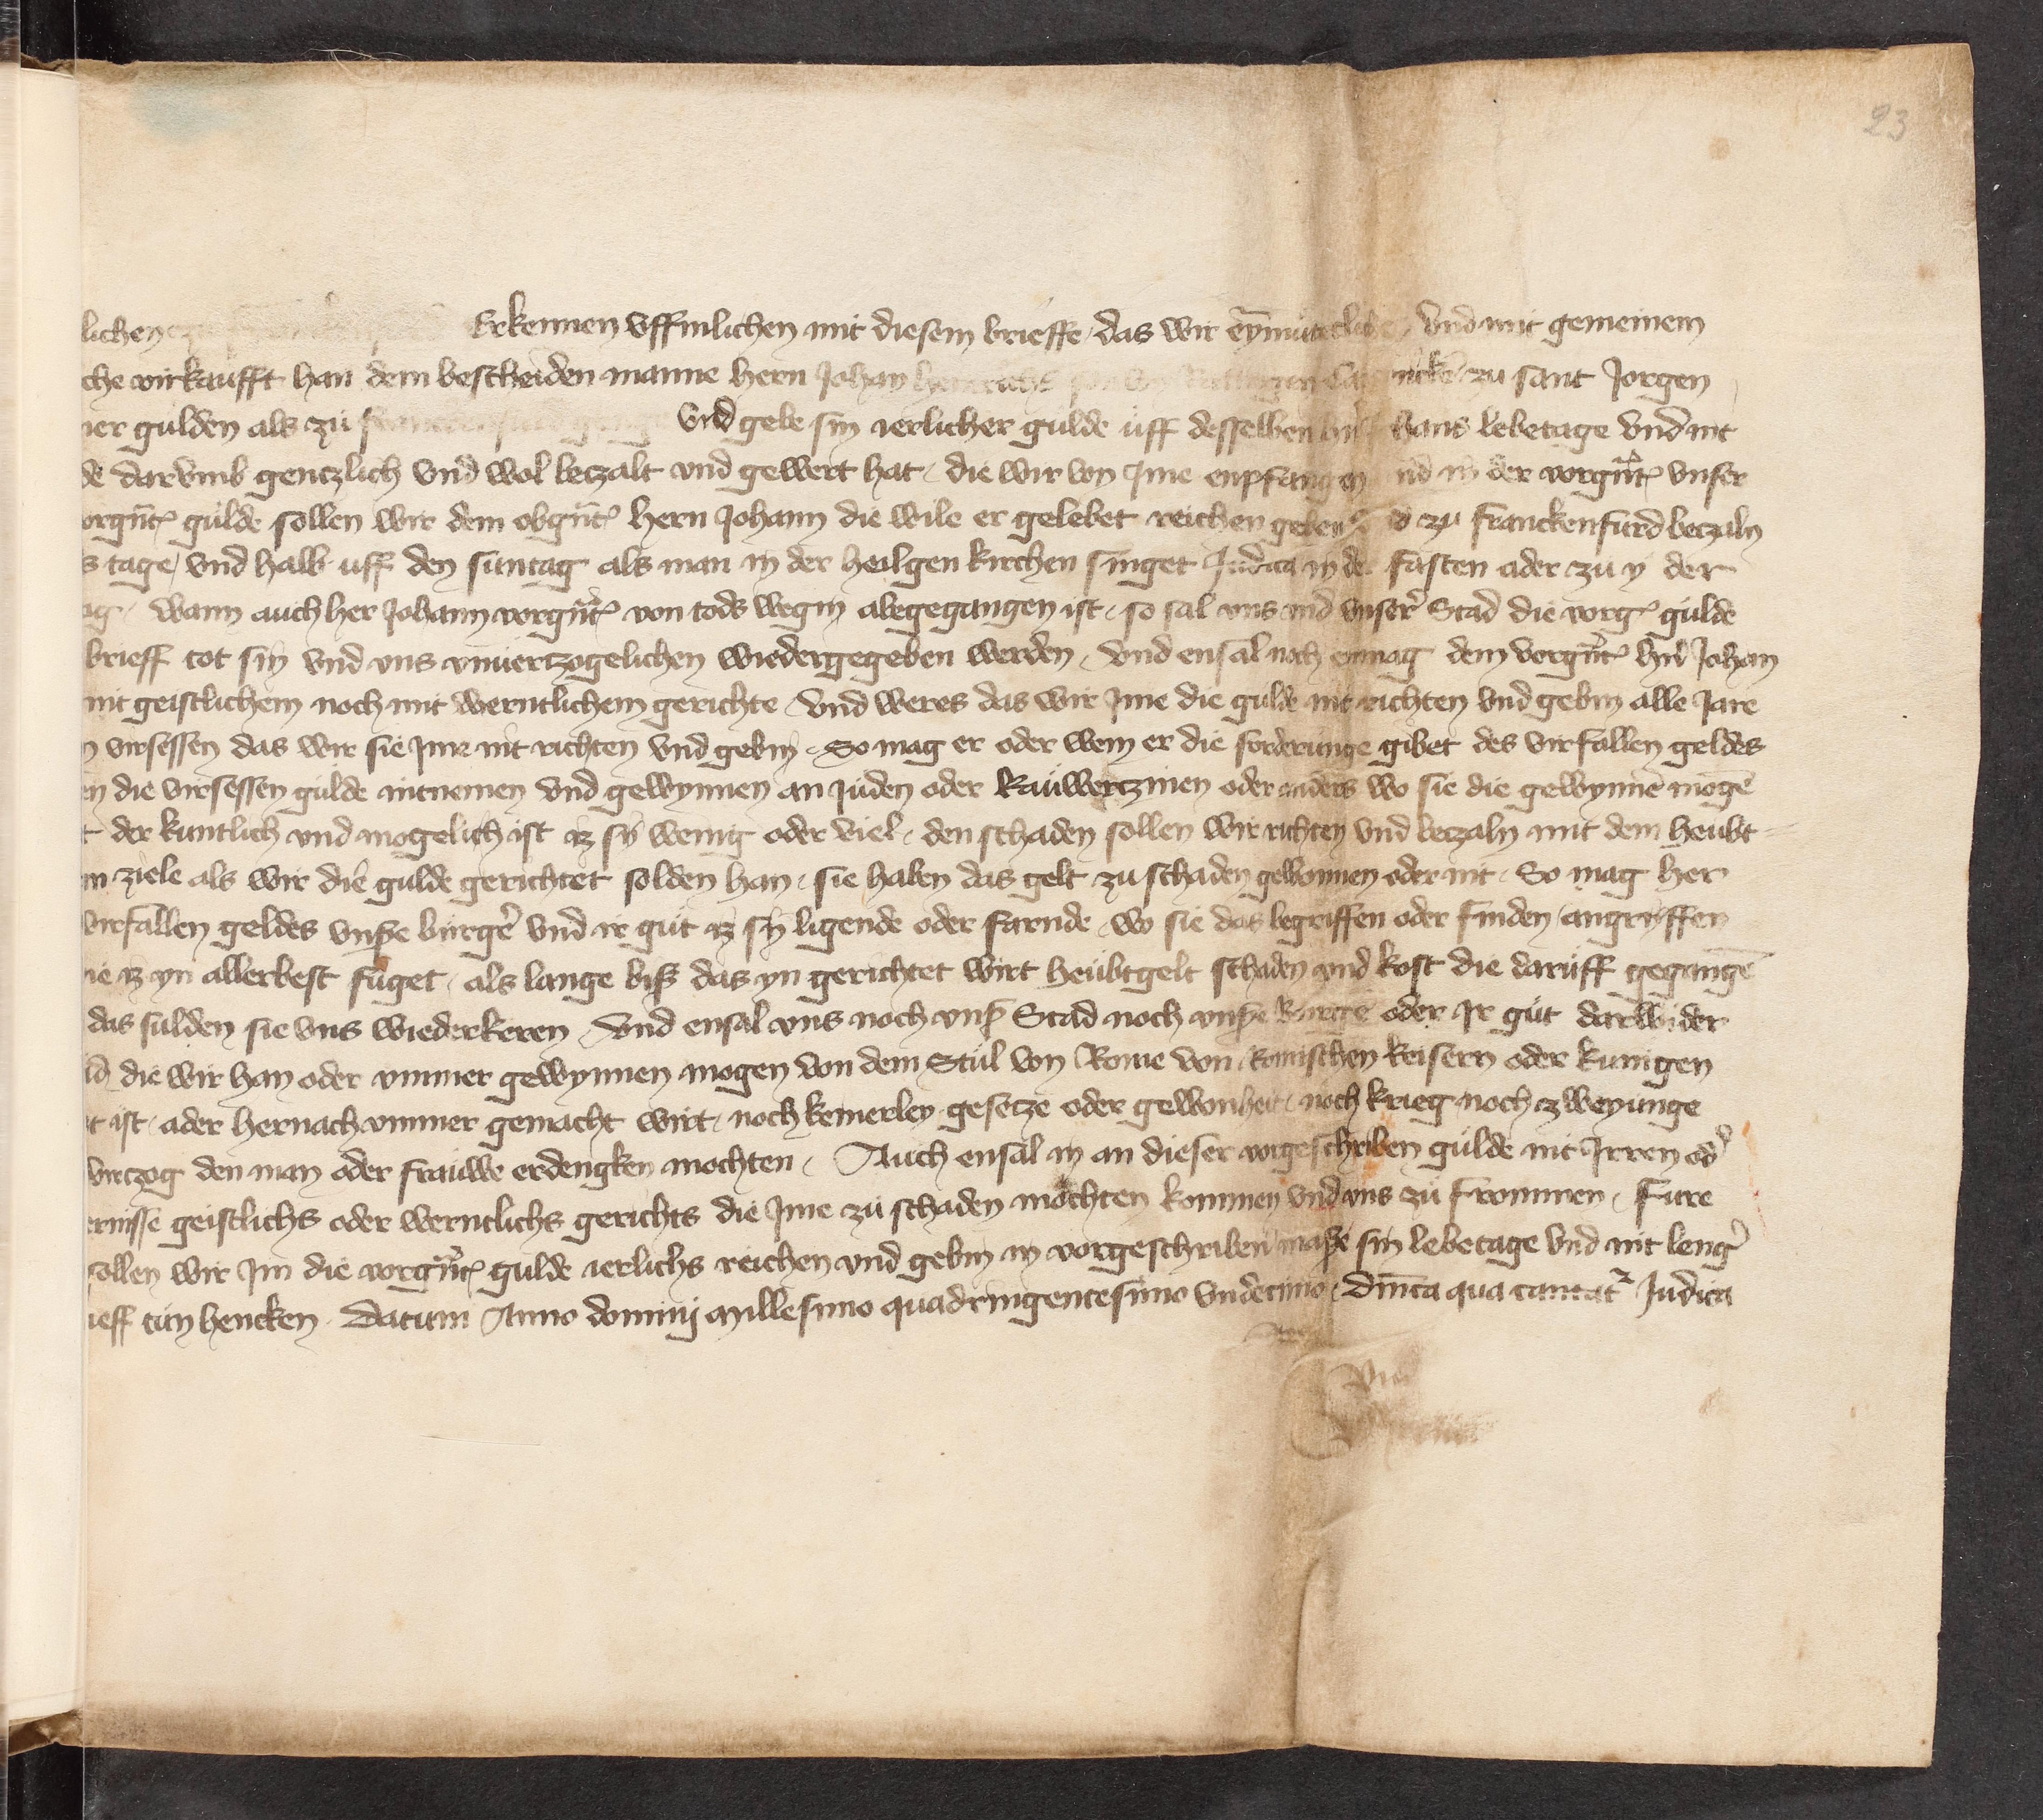 23
lichen Erkennen vffinlichen mit diesem brieffe das wir eymuteclichen vnd mit gemeinem
che virkaufft han dem bescheiden manne hern Johan zu sant Jorgen
ner gulden als zu vnd gebe sin ierlicher gulde uff desselben hants lebetage vnd nit
de darvmb gentzlich vnd wol betzalt vnd gewert hat die wir von Jme enpfangen vnd in der vorgnt vnser
orgnt gulde sollen wir dem obgnt hern Johann die wile er gelebet reichen geben zu Franckenfurd betzaln
s tage vnd halb uff den suntag als man in der heilgen kirchen singet Judica in der fasten ader zu y der
ag wann auch her Johann vorgnt von tods wegin abegegangen ist so sal vns vnd vnser Stad die vorg gulde
brieff tot sin vnd vns vnuertzogelichen wiedergegeben werden vnd ensal noch enmag dem vorgnt hn Johan
mit geistlichem noch mit werntlichem gerichte vnd weres das wir Jme die gulde nit richten vnd gebin alle Jare
n virsessen das wir sie Jme nit richten vnd gebin So mag er oder wem er die forderunge gibet des virfallen geldes
en die virsessen gulde nitnemen vnd gewynnen an Juden oder kauwertzinen oder anders wo sie die gewynne moge
t der kuntlich vnd mogelich ist iz sy wenig oder viel den schaden sollen wir richten vnd betzaln mit dem heubt
m ziele als wir die gulde gerichtet solden han sie haben das gelt zu schaden gewonnen oder nit So mag her
virfallen geldes vnße burger vnd ir gut iz sy ligende oder farnde wo sie das begriffen oder finden angryffen
ie iz yn allerbest fuget als lange biß das yn gerichtet wirt heubtgelt schaden vnd kost die daruff gegange
das sulden sie vns wiederkeren vnd ensal vns noch vnß Stad noch vnße burge oder Jr gut darwider
die wir han oder vmmer gewynnen mogen von dem Stul von Rome von Romischen keisern oder kunigen
t ist ader hernach vmmer gemacht wirt noch keinerley gesetze oder gewonheit noch krieg noch zweyunge
virtzog den man oder frauwe erdengken mochten Auch ensal in an dieser vorgeschriben gulde nit Jrren od
ernisse geistlichs oder werntlichs gerichts die Jme zu schaden mochten kommen vnd vns zu frommen Fure
sollen wir Jm die vorgnt gulde ierlichs reichen vnd gebin in vorgeschriben maße sin lebetage vnd nit leng
ieff tun hencken Datum Anno domini Millesimo quadringentesimo vndecimo dnica qua cantat Judica